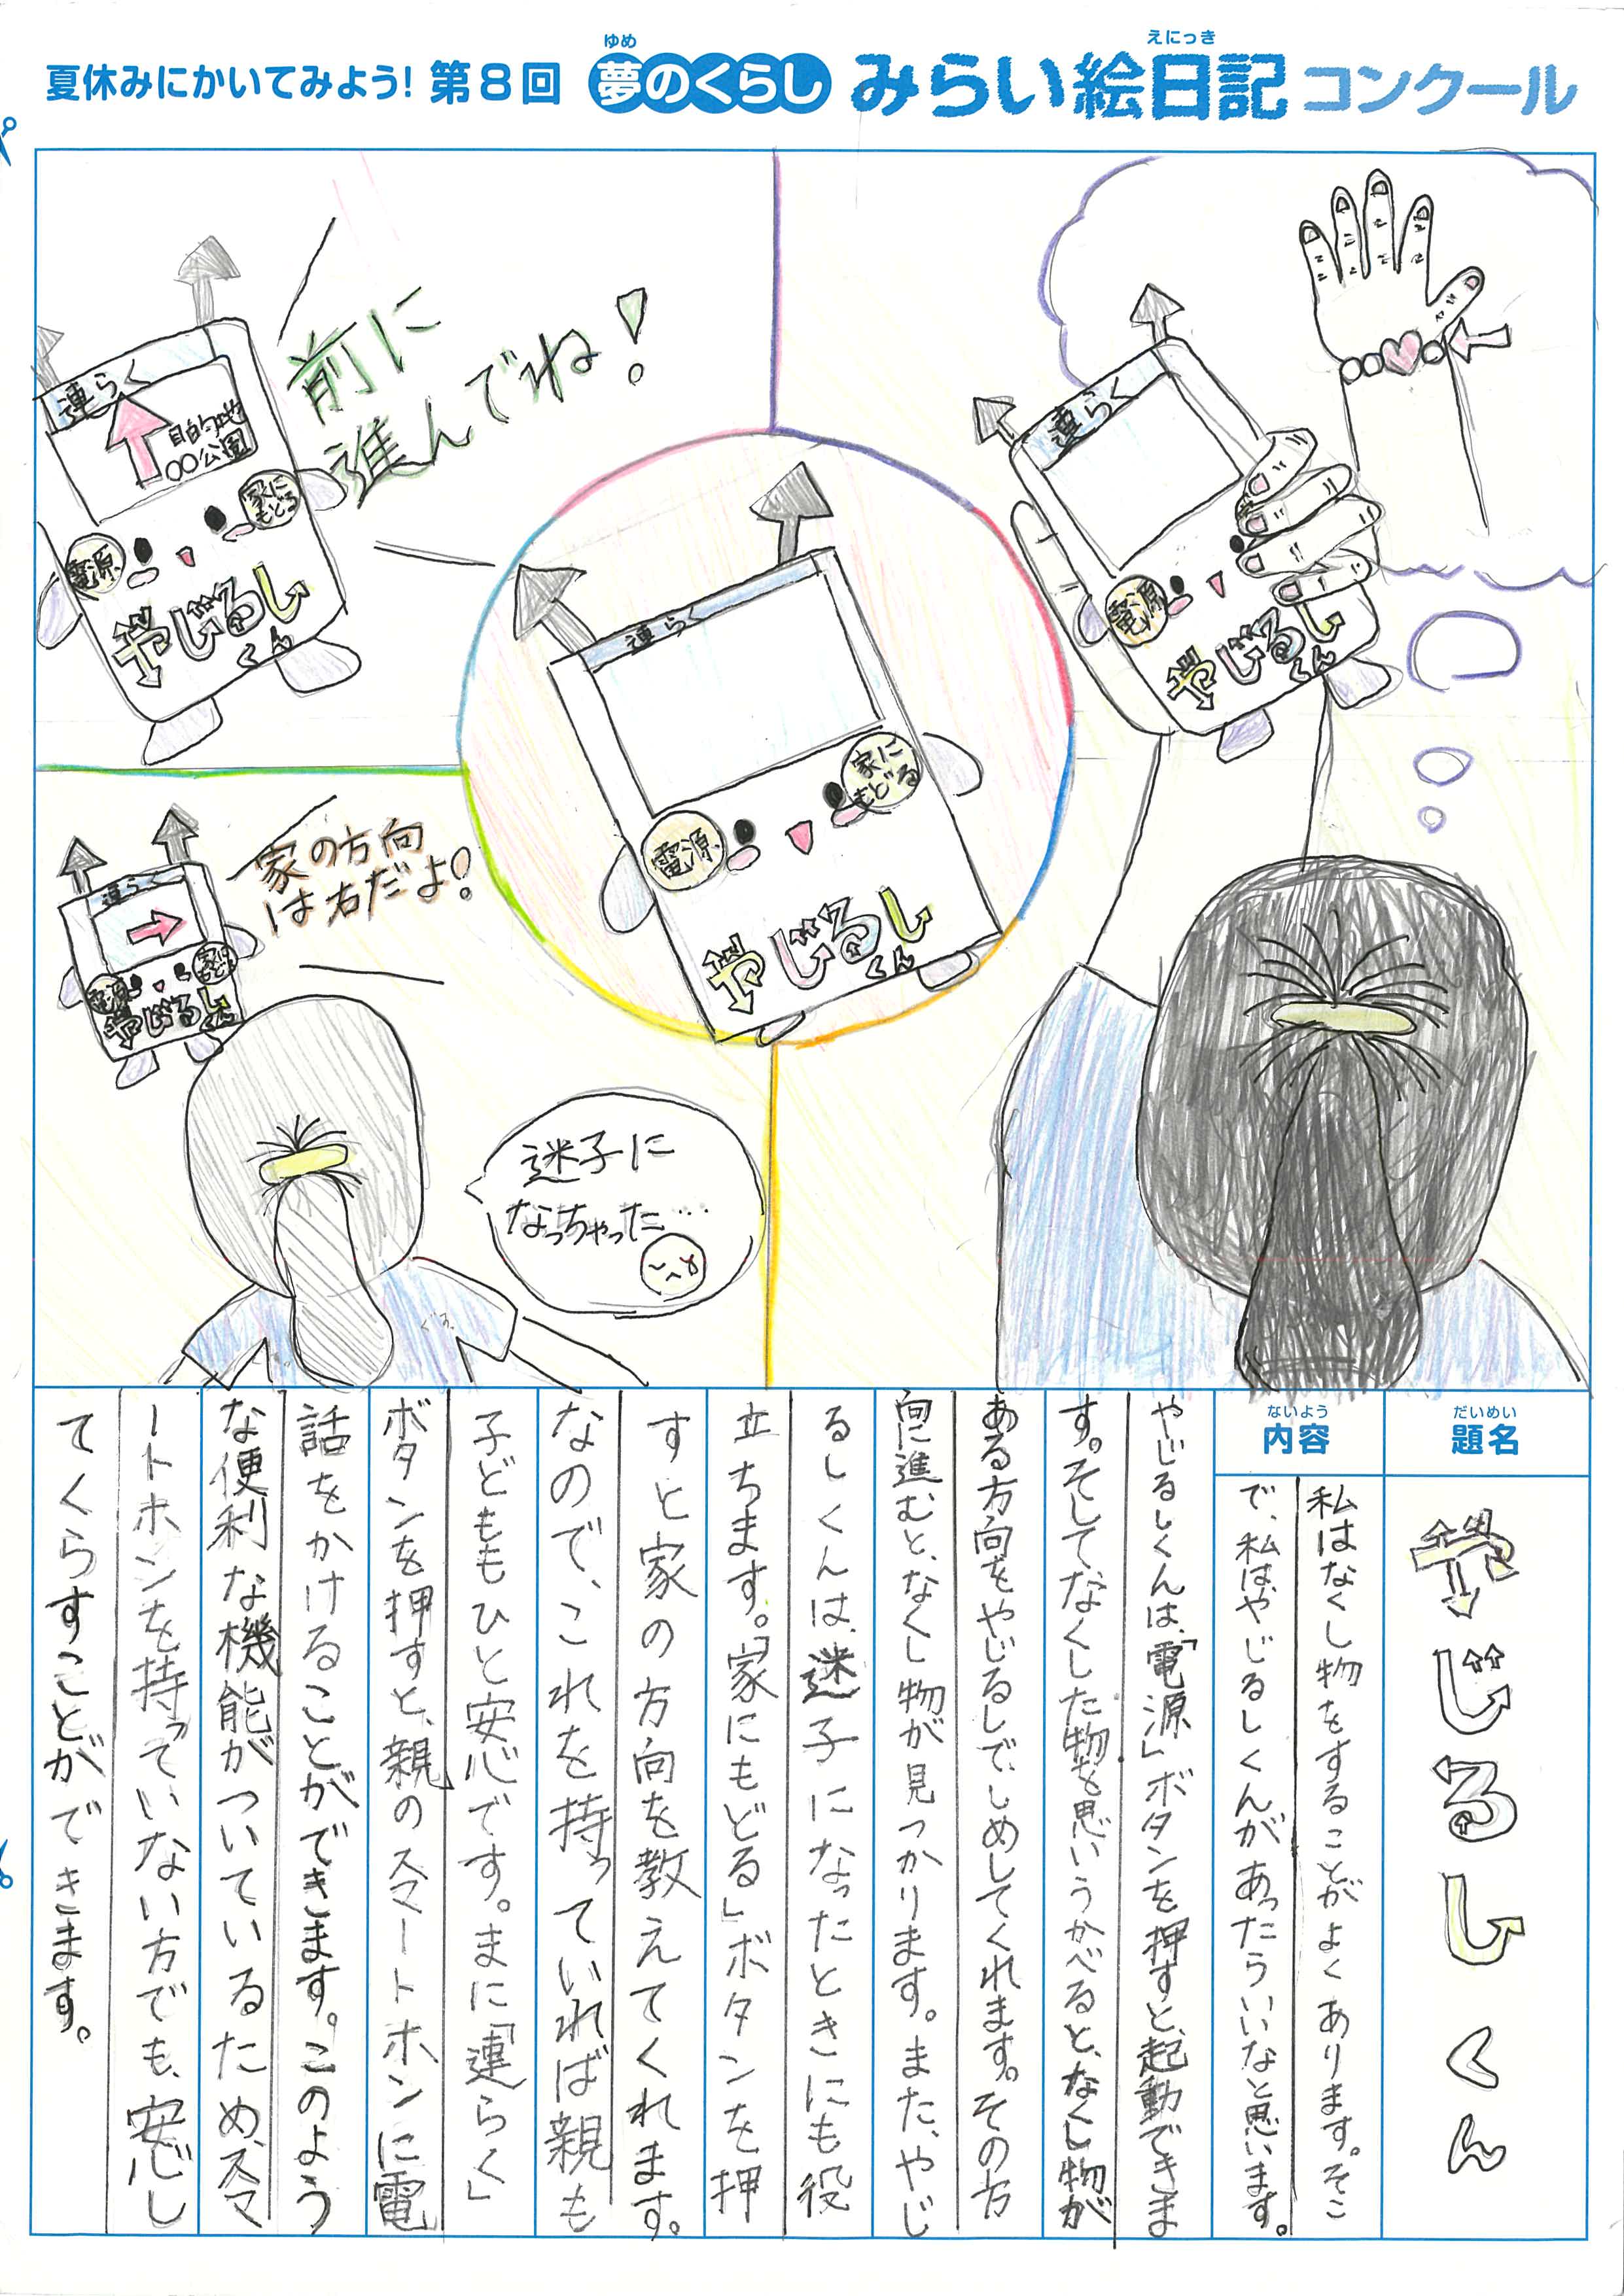 夏休みにかいてみよう! 第8回 夢のくらし みらい絵日記 コンクール
ゆめ
えにっき
前に
進んでね!
連らく
目的地
○○公園
家に
もどる
電源
やじるし
くん
連らく
電源
やじるし
くん
連らく
家に
もどる
電源
やじるし
くん
家の方向
は右だよ!
連らく
電源
やじるし
迷子に
なっちゃった…
だいめい
題名
やじるしくん
ないよう
内容
私はなくし物をすることがよくあります。そこ
で、私はやじるしくんがあったらいいなと思います。
やじるしくんは、「電源」ボタンを押すと、起動できま
す。そしてなくした物を思いうかべると、なくし物が
ある方向をやじるしで、しめしてくれます。その方
向に進むと、なくし物が見つかります。また、やじ
るしくんは、迷子になったときにも役
立ちます。「家にもどる」ボタンを押
すと家の方向を教えてくれます。
なので、これを持っていれば親も
子どももひと安心です。まに「連らく」
ボタンを押すと、親のスマートホンに電
話をかけることができます。このよう
な便利な機能がついているため、スマ
ートホンを持っていない方でも、安心し
てくらすことができます。